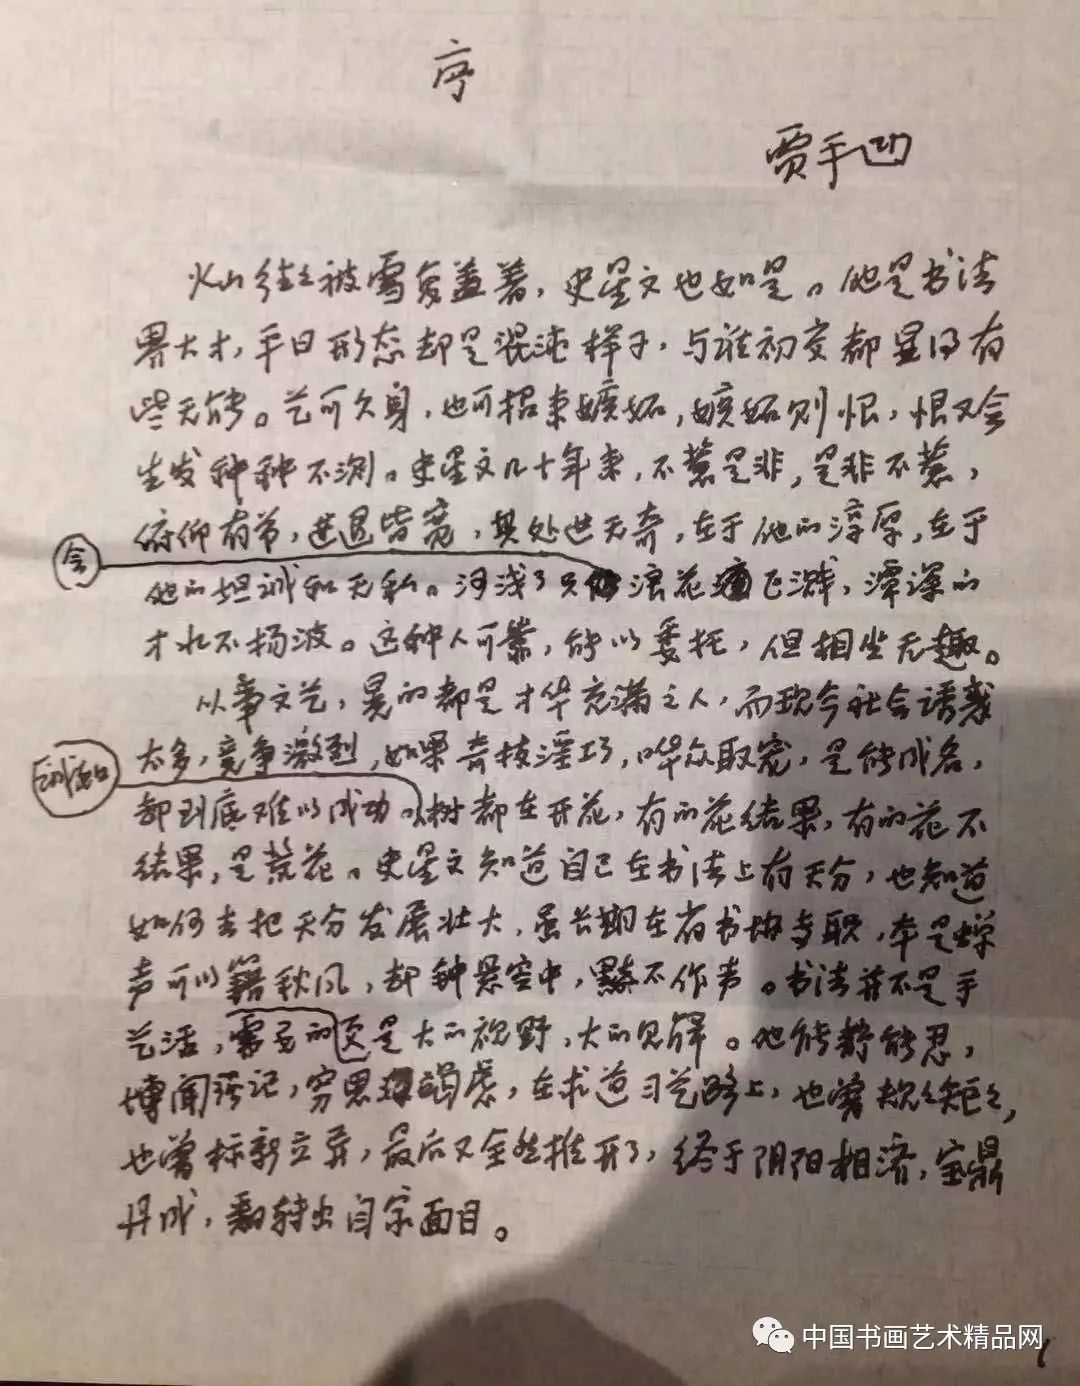 序
贾平凹
火山往往被雪覆盖着，史星文也如是。他是书法
界大才，平日形态却是混沌样子，与谁初交都显得有
些无能。艺可久身，也可招来嫉妬，嫉妬则恨，恨又会
生发种种不测。史星文几十年来，不惹是非，是非不惹，
俯仰有节，进退皆宽，其处世无奇，在于他的淳厚，在于
会
他的坦诚和无私。河浅了只 浪花 飞溅，潭深的
才水不扬波。这种人可靠，能以委托，但相坐无趣。
从事文艺，晃的都是才华充满之人，而现今社会诱惑
太多，竞争激烈，如果奇技淫巧，哗众取宠，是能成名，
却到底难以成功。 树都在开花，有的花结果，有的花不
结果，是荒花。史星文知道自己在书法上有天分，也知道
如何去把天分发展壮大，虽长期在省书协专职，本是蝉
声可以籍秋风，却钟悬空中，默不作声。书法并不是手
艺活，需要的更是大的视野，大的见解。他能静能忍，
博闻强记，穷思竭虑，在求道习艺路上，也曾规规矩矩，
也曾标新立异，最后又全然推开了，终于阴阳相济，宝鼎
丹成，翻转出自家面目。
1
中国书画艺术精品网